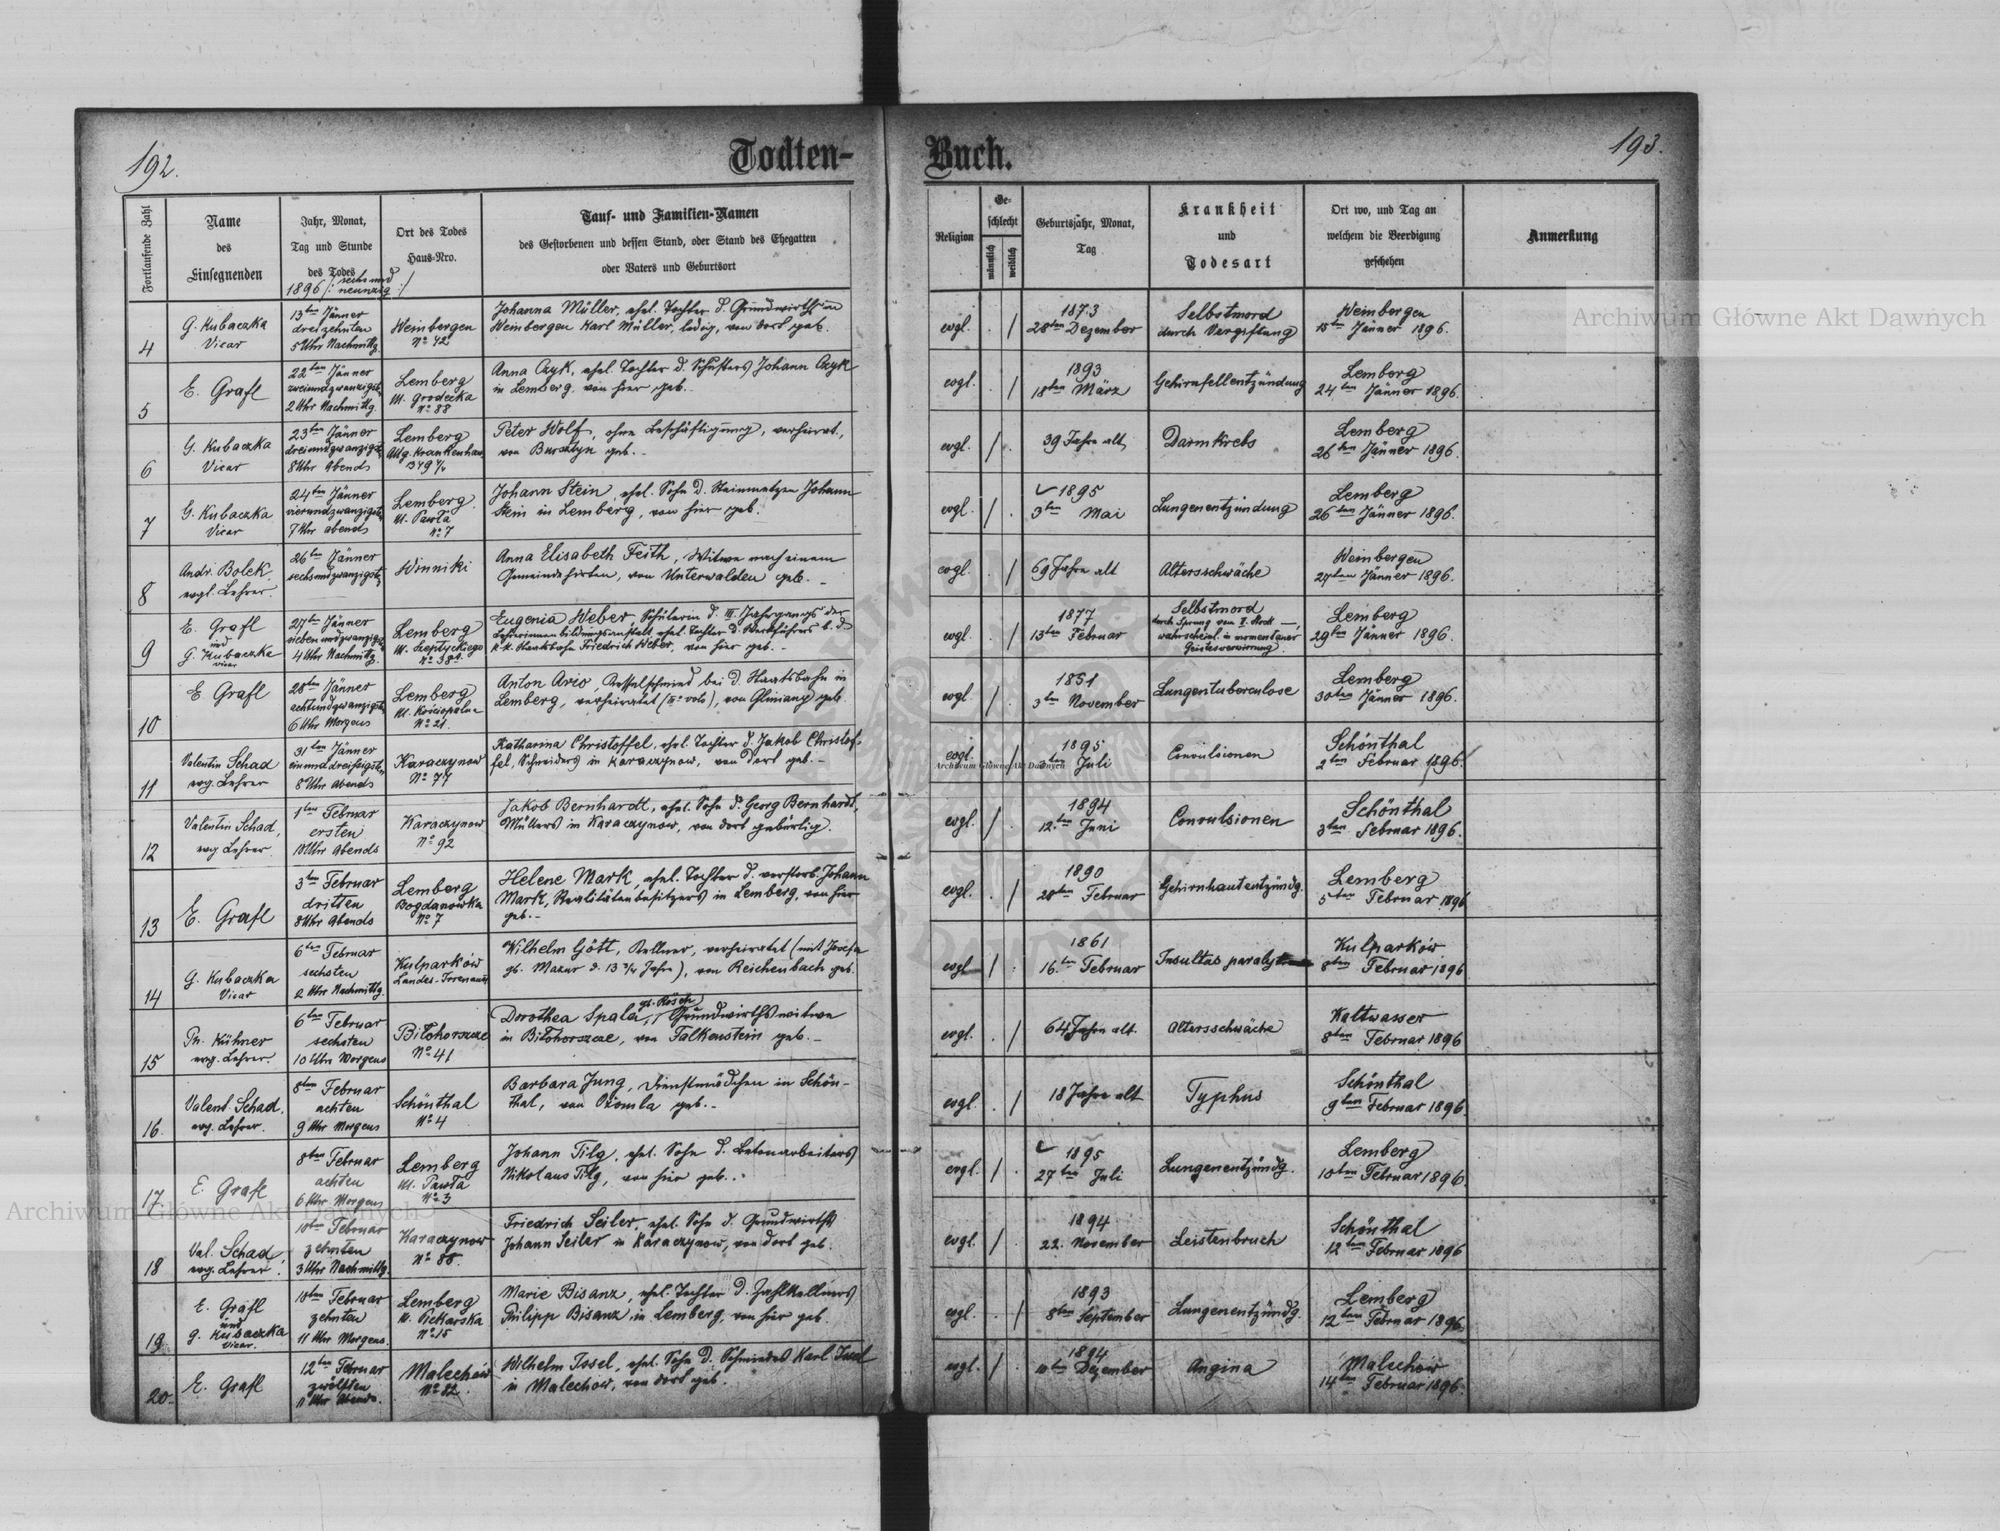 192.
Todten-
Buch.
193.
Fortlaufende Zahl
Name
des
Einsegnenden
Jahr, Monat,
Tag und Stunde
des Todes
Ort des Todes
Haus-Nro.
Tauf- und Familien-Namen
des Gestorbenen und dessen Stand, oder Stand des Ehegatten
oder Vaters und Geburtsort
Religion
Ge-
schlecht
männlich
weiblich
Geburtsjahr, Monat,
Tag
Krankheit
und
Todesart
Ort wo, und Tag an
welchem die Beerdigung
geschehen
Anmerkung
1896 /: sechs und
neunzig :/
4
G. Kubaczka
Vicar
13ten Jänner
dreizehnten
5 Uhr Nachmittg.
Weinbergen
No 42
Johanna Müller, ehel. Tochter d. Grundwirths in
Weinbergen Karl Müller, ledig, von dort geb.
evgl.
1873
28ten Dezember
Selbstmord
durch Vergiftung
Weinbergen
15ten Jänner 1896.
5
E. Grafl
22ten Jänner
zweiundzwanzigst.
2 Uhr Nachmittg.
Lemberg
Ul. Grodecka
No 88
Anna Czyk, ehel. Tochter d. Schusters Johann Czyk
in Lemberg, von hier geb.
evgl.
1893
18ten März
Gehirnfellentzündung
Lemberg
24ten Jänner 1896.
6
G. Kubaczka
Vicar
23ten Jänner
dreiundzwanzigst.
8 Uhr Abends
Lemberg
Allg. Krankenhaus
349 4/4
Peter Wolf, ohne Beschäftigung, verheirat.,
von Bursztyn geb.
evgl.
39 Jahre alt
Darmkrebs
Lemberg
26ten Jänner 1896.
7
G. Kubaczka
Vicar
24ten Jänner
vierundzwanzigst.
7 Uhr abends
Lemberg
Ul. Pawła
No 7
Johann Stein, ehel. Sohn d. Steinmetzen Johann
Stein in Lemberg, von hier geb.
evgl.
1895
3ten Mai
Lungenentzündung
Lemberg
26ten Jänner 1896.
8
Andr. Bolek,
evgl. Lehrer.
26ten Jänner
sechsundzwanzigst.
Winniki
Anna Elisabeth Feith, Witwe nach einem
Gemeindehirten, von Unterwalden geb.
evgl.
69 Jahre alt
Altersschwäche
Weinbergen
27ten Jänner 1896.
9
E. Grafl
und
G. Kubaczka
Vicar
27ten Jänner
siebenundzwanzigst.
4 Uhr Nachmittg.
Lemberg
Ul. Szeptyckiego
No 38a.
Eugenia Weber, Schülerin d. III. Jahrgangs der
Lehrerinnenbildungsanstalt, ehel. Tochter d. Werkführers b. d.
k. k. Staatsbahn Friedrich Weber, von hier geb.
evgl.
1877
13ten Februar
Selbstmord
durch Sprung vom II. Stock —,
wahrscheinl. in momentaner
Geistesverwirrung.
Lemberg
29ten Jänner 1896.
10
E. Grafl
28ten Jänner
achtundzwanzigst.
6 Uhr Morgens
Lemberg
No 21.
Anton Ario, Kesselschmied bei d. Staatsbahn in
Lemberg, verheiratet (IIo voto), von Gliniany geb.
evgl.
1851
3ten November
Lungentuberculose
Lemberg
30ten Jänner 1896.
11
Valentin Schad
evg. Lehrer
31ten Jänner
einunddreissigsten
8 Uhr Abends
Karaczynow
No 77
Katharina Christoffel, ehel. Tochter d. Jakob Christof-
fel, Schneiders in Karaczynow, von dort geb.
evgl.
1895
ten Juli
Convulsionen
Schönthal
2ten Februar 1896.
12
Valentin Schad,
evg. Lehrer
1ten Februar
ersten
10 Uhr Abends
Karaczynow
No 92
Jakob Bernhardt, ehel. Sohn d. Georg Bernhardt,
Müllers in Karaczynow, von dort gebürtig.
evgl.
1894
12.ten Juni
Convulsionen
Schönthal
3ten Februar 1896.
13
E. Grafl
3ten Februar
dritten
8 Uhr Abends
Lemberg
Bogdanowka
No 7
Helene Mark, ehel. Tochter d. verstorb. Johann
Mark, Realitätenbesitzers in Lemberg, von hier
geb.
evgl.
1890
28ten Februar
Gehirnhautentzündg.
Lemberg
5ten Februar 1896
14
G. Kubaczka
Vicar
6ten Februar
sechsten
2 Uhr Nachmittg.
Kulparków
Landes-Irrenanst.
Wilhelm Gött, Kellner, verheiratet (mit Josefa
gb. Mazur d. 13 3/4 Jahre), von Reichenbach geb.
evgl.
1861
16.ten Februar
Insultus paralyt
Kulparków
8ten Februar 1896
15
Ph. Kühner
evg. Lehrer.
6ten Februar
sechsten
10 Uhr Morgens
Biłohorszcze
No 41
gb. Rösch
Dorothea Spaler, Grundwirthswitwe
in Biłohorszcze, von Falkenstein geb.
evgl.
64 Jahre alt
Altersschwäche
Kaltwasser
8ten Februar 1896
16.
Valent. Schad,
evg. Lehrer.
8ten Februar
achten
9 Uhr Morgens
Schönthal
No 4
Barbara Jung, Dienstmädchen in Schön-
thal, von Ottomla geb.
evgl.
18 Jahre alt
Typhus
Schönthal
9ten Februar 1896
17.
E. Grafl
8ten Februar
achten
6 Uhr Morgens
Lemberg
Ul. Pawła
No 3
Johann Tilg, ehel. Sohn d. Betonarbeiters
Nikolaus Tilg, von hier geb.
evgl.
1895
27ten Juli
Lungenentzündg.
Lemberg
10ten Februar 1896
18
Val. Schad
evg. Lehrer.
10ten Februar
zehnten
3 Uhr Nachmittg.
Karaczynow
No 88.
Friedrich Seiler, ehel. Sohn d. Grundwirths
Johann Seiler in Karaczynow, von dort geb.
evgl.
1894
22. November
Leistenbruch
Schönthal
12ten Februar 1896
19
E. Grafl
und
G. Kubaczka
Vicar.
10ten Februar
zehnten
11 Uhr Morgens.
Lemberg
Ul. Piekarska
No 15
Marie Bisanz, ehel. Tochter d. Zahlkellners
Philipp Bisanz in Lemberg, von hier geb.
evgl.
1893
8ten September
Lungenentzündg.
Lemberg
12ten Februar 1896.
20.
E. Grafl
12ten Februar
zwölften
11 Uhr Abends.
Malechów
No 82.
Wilhelm Issel, ehel. Sohn d. Schmiedes Karl Issel
in Malechow, von dort geb.
evgl.
1894
ten Dezember
Angina
Malechow
14ten Februar 1896.
Archiwum Główne Akt Dawnych
Archiwum Główne Akt Dawnych
Archiwum Główne Akt Dawnych